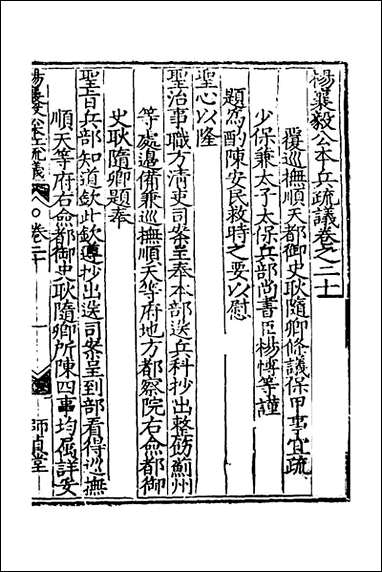 楊襄毅公本兵疏議卷之二十
覆巡撫順天都御史耿隨卿條議保甲事宜疏
少保兼太子太保兵部尚書臣楊博等謹
題爲酌陳安民救時之要以慰
聖心以隆
聖治事職方清吏司案呈奉本部送兵科抄出整飭薊州
等處邊備兼巡撫順天等府地方都察院右僉都御
史耿隨卿題奉
聖旨兵部知道欽此欽遵抄出送司案呈到部看得巡撫
順天等府右僉都御史耿隨卿所陳四事均屬詳妥
楊襄毅公本兵疏議 卷二十 一 師貞堂